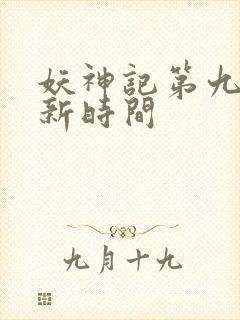 妖神記第九
新時間
九月十九